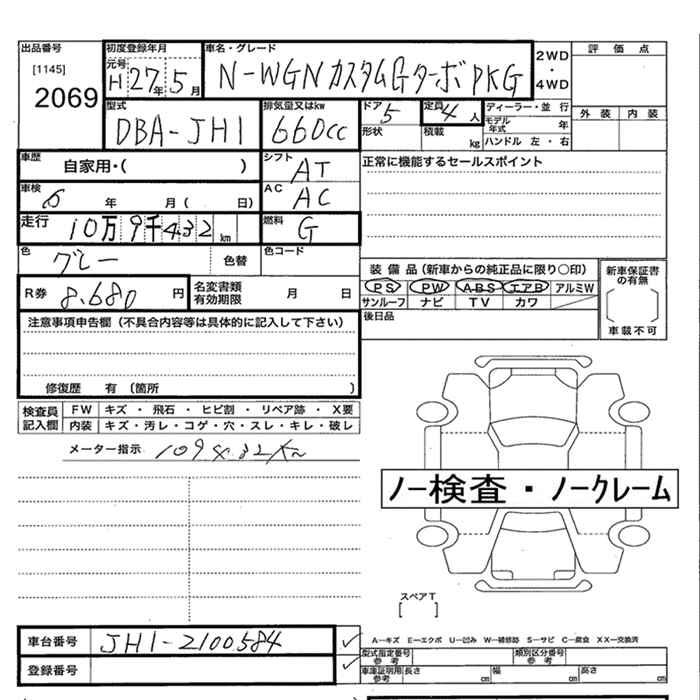 出品番号 初度登録年月 車名・グレード 評価点
[1145] 元号 H 27年 5月 N-WGN カスタムGターボPKG 2WD・4WD
2069
型式 排気量又はkw ドア 5 定員 4人 ディーラー・並行 外装 内装
DBA-JH1 660cc 形状 積載 kg モデル年式 年
ハンドル 左・右
車歴 自家用・( ) シフト AT 正常に機能するセールスポイント
車検 6年 月( 日) AC AC
走行 10万9千432km 燃料 G
色 グレー 色替 色コード
装備品(新車からの純正品に限り〇印) 新車保証書の有無
R券 8,680円 名変書類有効期限 月 日 PS PW ABS エアB アルミW
サンルーフ ナビ TV カワ
注意事項申告欄(不具合内容等は具体的に記入して下さい) 後日品 車載不可
修復歴 有 (箇所 )
検査員記入欄 FW キズ・飛石・ヒビ割・リペア跡・X要
内装 キズ・汚レ・コゲ・穴・スレ・キレ・破レ
メーター指示 109432km
ノー検査・ノークレーム
スペアT
[ ]
車台番号 JH1-2100584 ✓ A-キズ E-エクボ U-凹み W-補修跡 S-サビ C-腐食 XX-交換済
型式指定番号 参考 類別区分番号 参考
登録番号 ✓ 車庫証明用参考 長さ cm 幅 cm 高さ cm